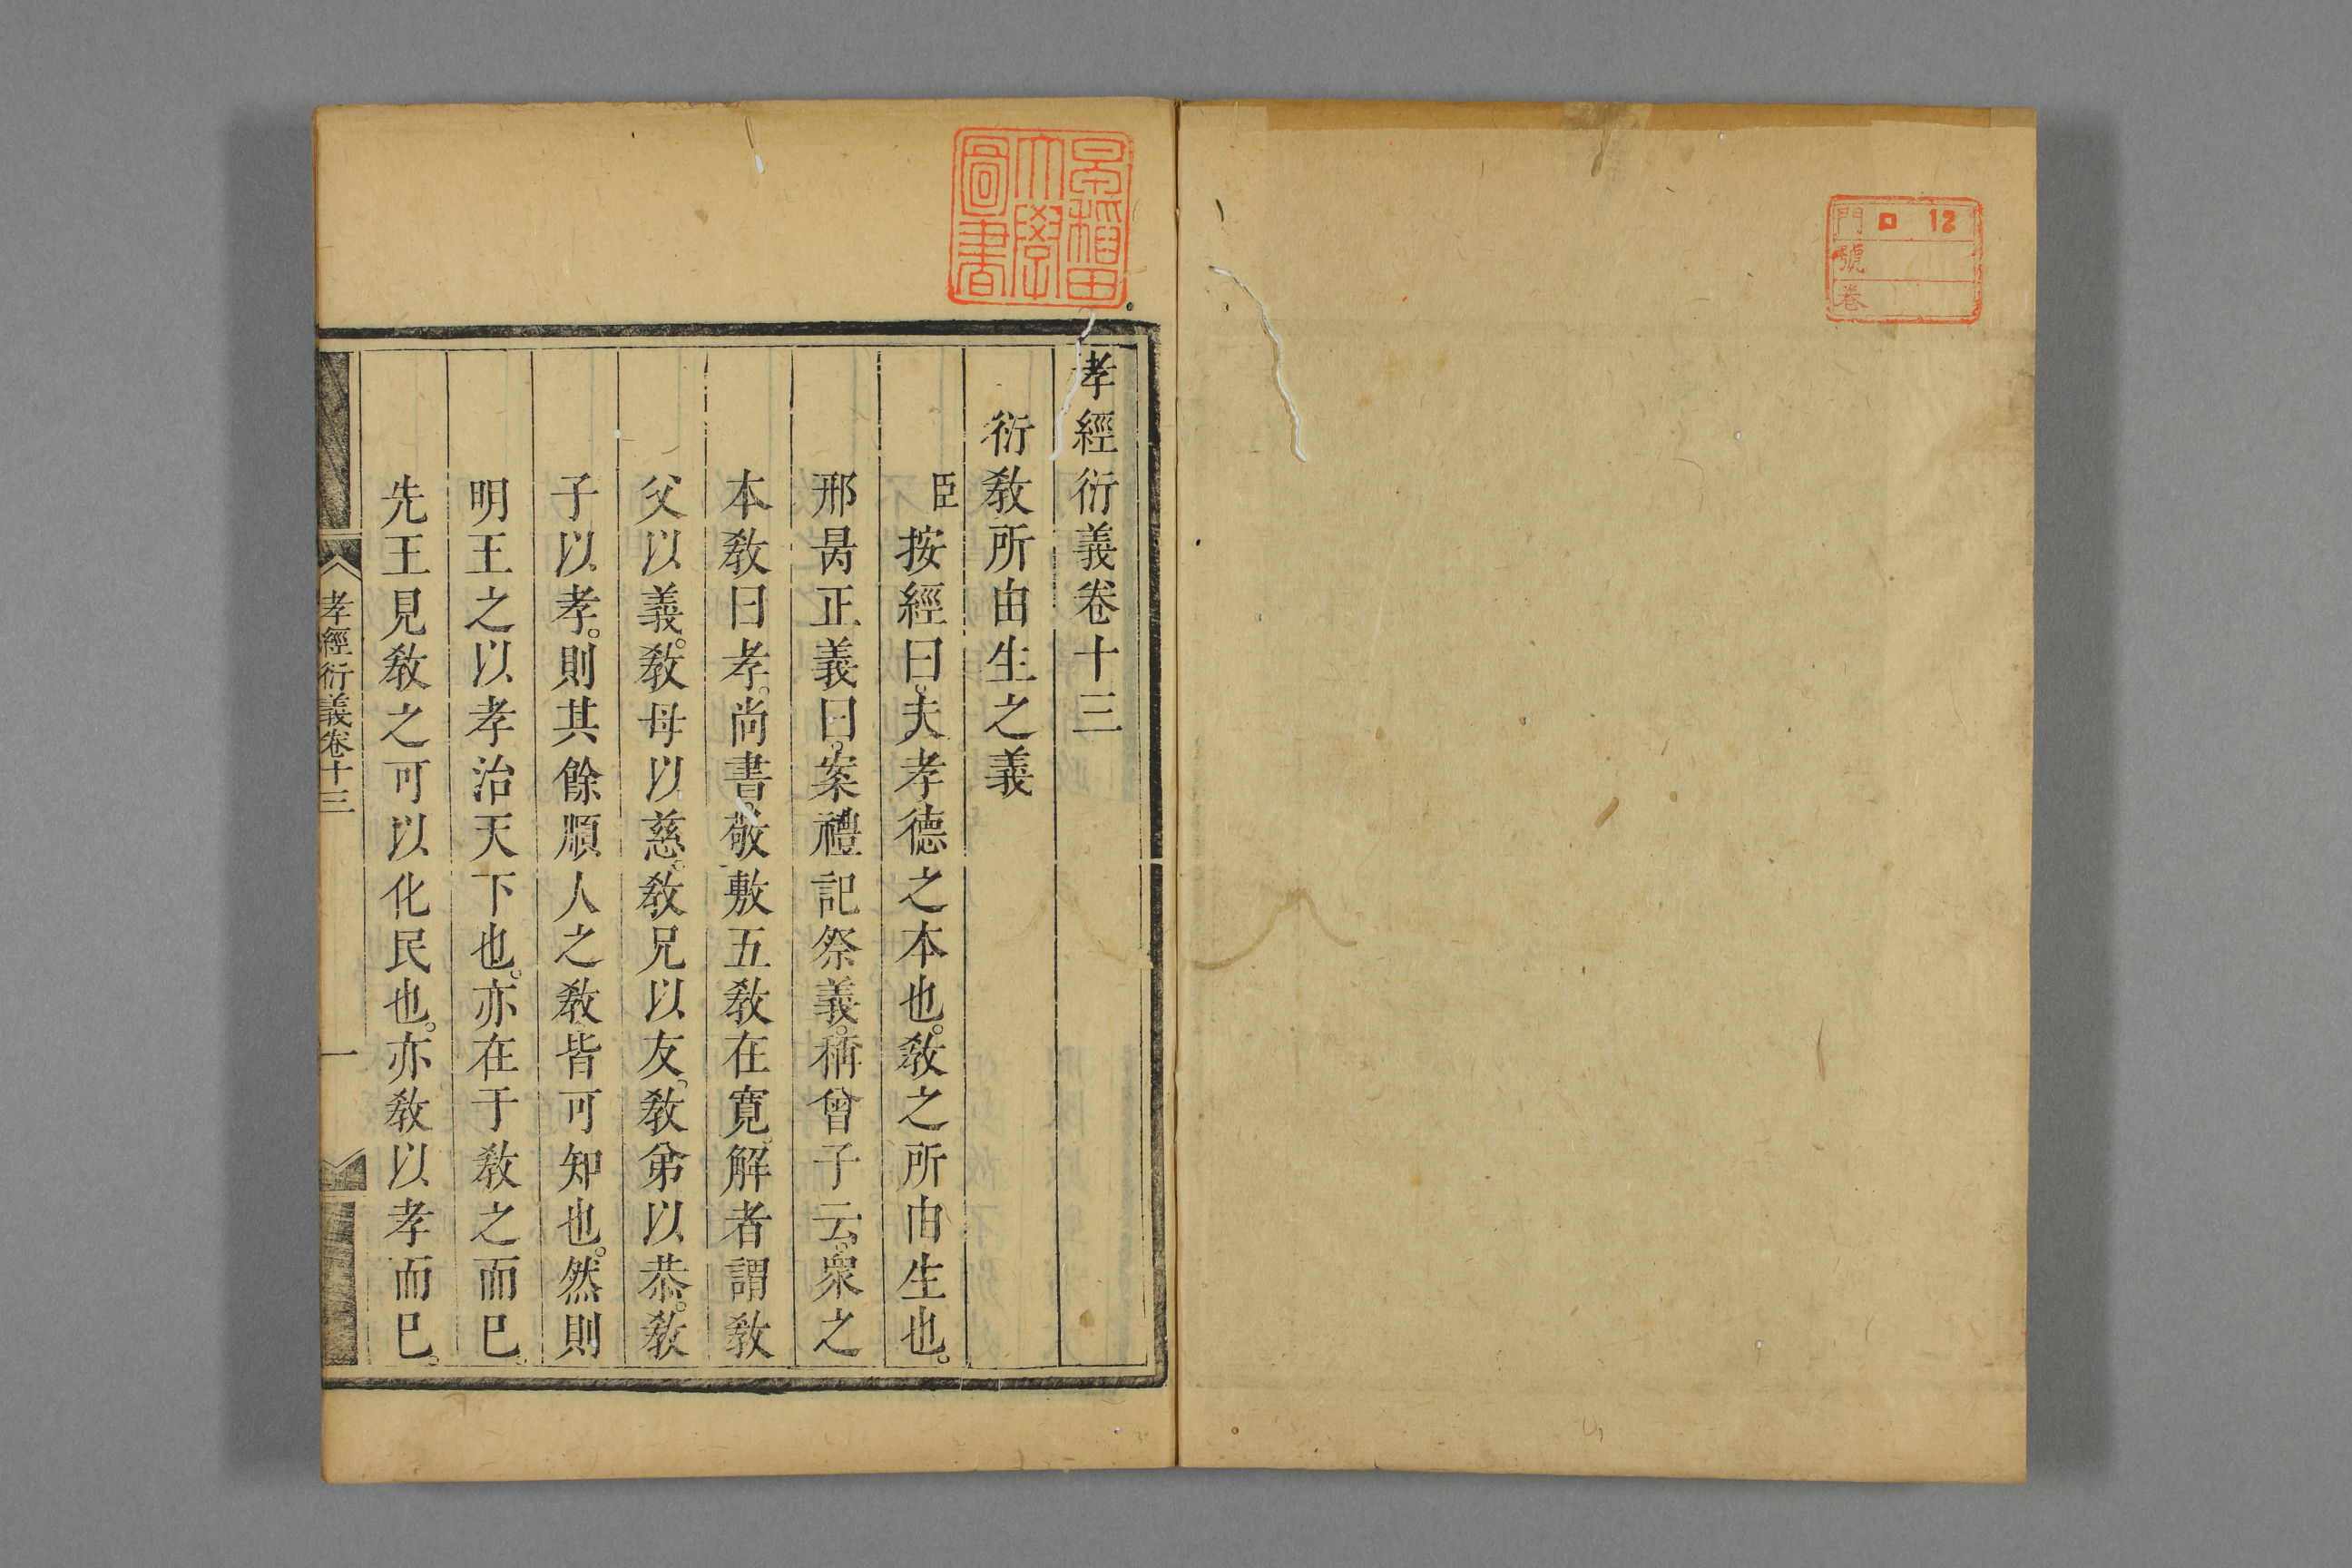 門 ロ 12
號
卷
早稻田
大學
圖書
孝經衍義卷十三
衍敎所由生之義
臣按經曰。夫孝德之本也。敎之所由生也。
邢昺正義曰。案禮記祭義。稱曾子云。衆之
本敎曰孝。尚書。敬敷五敎在寬。解者謂敎
父以義。敎母以慈。敎兄以友。敎弟以恭。敎
子以孝。則其餘順人之敎皆可知也。然則
明王之以孝治天下也。亦在于敎之而已。
先王見敎之可以化民也。亦敎以孝而已。
孝經衍義卷十三 一